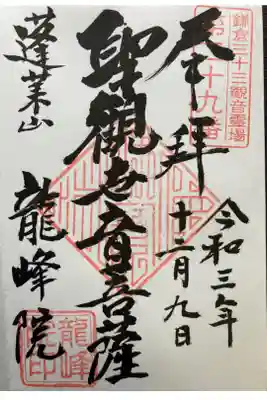 鎌倉三十三観音霊場
第二十九番
奉拜
令和三年
十二月九日
聖觀世音菩薩
蓬莱山
龍峰院
龍峰院印